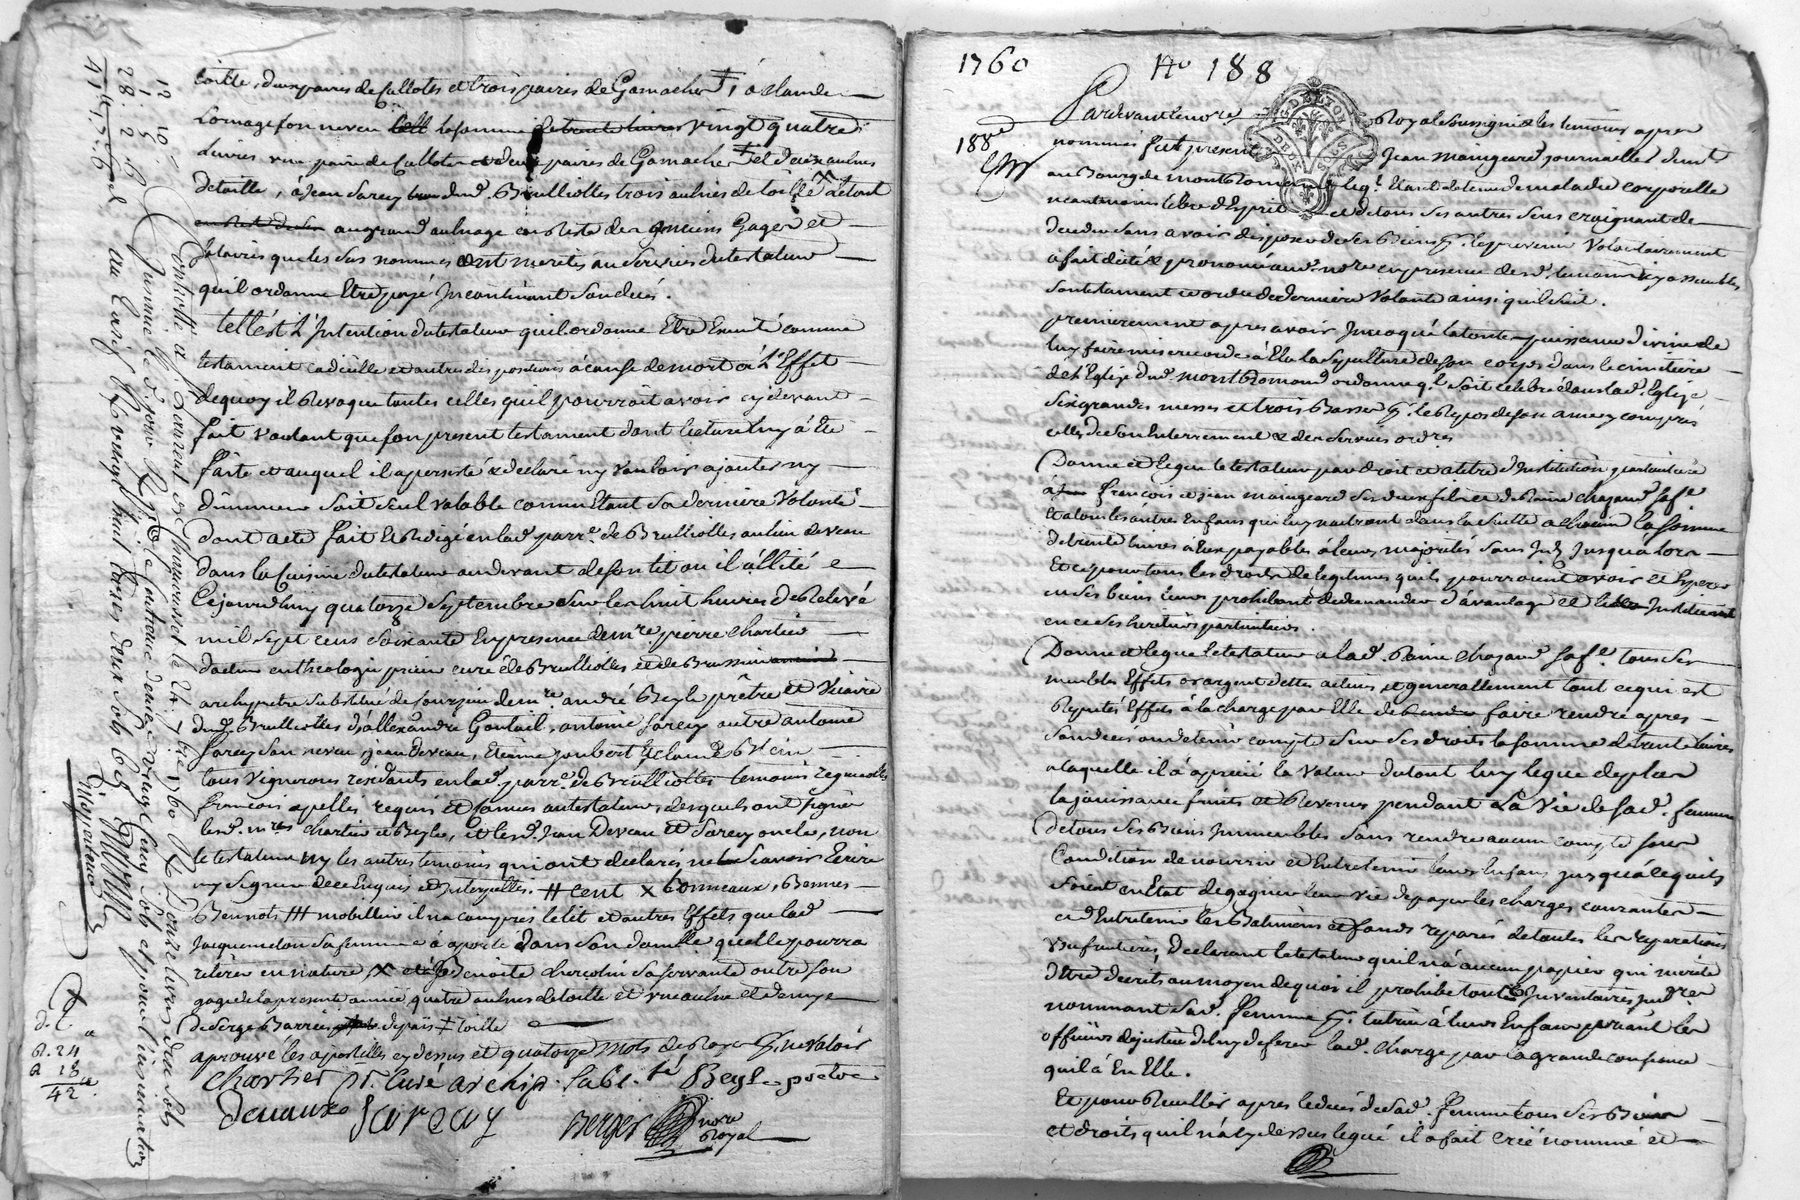 toille, deux paires de Cullotes et trois paires de Gamaches ‡, à Claude
Lornage son neveu la somme de trente livres vingt quatre
Livres une paire de Cullotes et deux paires de Gamaches ‡ et deux aulnes
de toille, à Jean Sarcey dud. Brulliolles trois aulnes de toille le tout
au grand aulnage en reste des anciens Gages et
Salaires que les sus nommés ont merités au service du testateur
qu'il ordonne Etre payé Incontinant son decès.
Tell'est L'Intention du testateur quil ordonne Etre Executé comme
testament codicille et autres dispositions à cause de mort à L'Effet
dequoy il Revoque toutes celles quil pourroit avoir cy devant
fait voulant que son present testament dont lecture luy à été
faite et auquel il a persisté & declaré ny vouloir ajouter ny
diminuer soit seul valable comme Etant sa derniere Volonté
dont acte fait & Redigé en lad. parr.e de Brulliolles au lieu de veau
dans la Cuisine du testateur au devant de son lit ou il est allité
Cejourdhuy quatorze Septembre sur les huit heures de Relevé
mil sept cens soixante En presence de m.re pierre Chartier
docteur en theologie prieur curé de Brulliolles et de Brussieu
archiprêtre substitué de de m.re andré Beyle prêtre et Vicaire
dud. Brulliolles d'allexandre Gontail, antoine Sarcey autre antoine
Sarcey son neveu, Jean Deveau, Etienne Joubert & Claude
tous Vignerons residants en lad. parr.e de Brulliolles temoins
francois apellés requis et connus au testateur desquels ont signés
lesd. m.res Chartier & Beyle, et lesd. Jean Deveau et Sarcey oncle, non
le testateur ny les autres temoins qui ont declarés ne Scavoir Ecrire
ny Signer de ce Enquis et Interpellés. # cent x tonneaux, Bennes
Bennots ### mobillier il n'a compris le lit et autres Effets que lad.
Jacquemelon sa femme à aporté dans son domicille quelle pourra
retirer en nature, X Benoite sa servante outre son
gage de la presente année, quatre aulnes de toille et une aulne et demye
de Serge ‡ toille
aprouvé les apostilles cy dessus et quatorze mots de Rayer p. ne valoir
Chartier pr. Curé archip. Beyle prêtre
deveaux Sarcey Berger no.re Royal
Controllé à S. Laurent de Chamousset le 24. 7bre 1760 R. Douze livres dix sols
Insinué le d. jour
au tarif R. vingt huit livres deux sols
12 10
1 5
28. 2. 6
41 tt 17. 6
A. 24
A 18
42
1760
N.o 188
188.e
Pardevant le no.re Royal soussigné & les temoins apres
nommés fut present Jean maingeard journallier dem.t
au Bourg de montRomand leq.l Etant detenu de maladie corporelle
neantmoins libre d'Esprit et de tous ses autres sens craignant de
deceder sans avoir disposé de ses Biens p. le prevenir Volontairement
a fait dicté & prononcé aud. no.re en presence desd. temoins icy assemblés
son testament et ordre de derniere Volonté ainsi quil suit.
premierement apres avoir Invoqué la toute puissance divine de
luy faire misericorde à Elu la Sepulture de son corps dans le cimitiere
de L'Eglise dud. montRomand ordonne q.l soit celebré dans lad. Eglise
Six grandes messes et trois Basses p. le Repos de son ame y compris
celles de son Enterrement & des Services ord.res
Donne et legue le testateur par droit et a titre d'Institution particuliere
à francois et Jean maingeard ses deux fils et de Reine Chazaud sa f.e
et a tous les autres Enfans qui luy naitront dans la suitte a chacun la somme
de trente livres à Eux payables à leurs majorités sans Int. Jusqu'à lors
Et ce pour tous les droits de legitimes quils pourroient avoir & Esperer
en ses biens leurs prohibant de demander d'avantage et les Instituant
en ce ses heritiers particuliers.
Donne et legue le testateur a lad. Reine Chazaud sa f.e tous ses
meubles Effets or argent dettes actives et generallement tout ce qui est
Reputés Effets à la charge par Elle de faire rendre apres
son deces ou de tenir compte sur ses droits la somme de trente livres
a laquelle il à aprecié la Valeur du tout luy legue de plus
la jouissance fruits et Revenus pendant La Vie de sad. femme
de tous ses Biens Immeubles sans rendre aucun compte sous
Condition de nourrir et Entretenir leurs Enfans jusqu'à ce quils
soient en Etat de gagner leur vie de payer les charges courantes
et d'Entretenir les Batiments et fonds reparés de toutes les reparations
usufruitieres, Declarant le testateur quil n'à aucun papier qui merite
d'Etre decrits au moyen de quoi il prohibe tous Inventaires jud.res
nommant sad. femme p. tutrice à leurs Enfans priant les
officiers de justice de luy deferer lad. charge par la grande confiance
quil à En Elle.
Et pour Recueillir apres le deces de sad. femme tous ses Biens
et droits quil n'à cy dessus legué il a fait créé nommé et